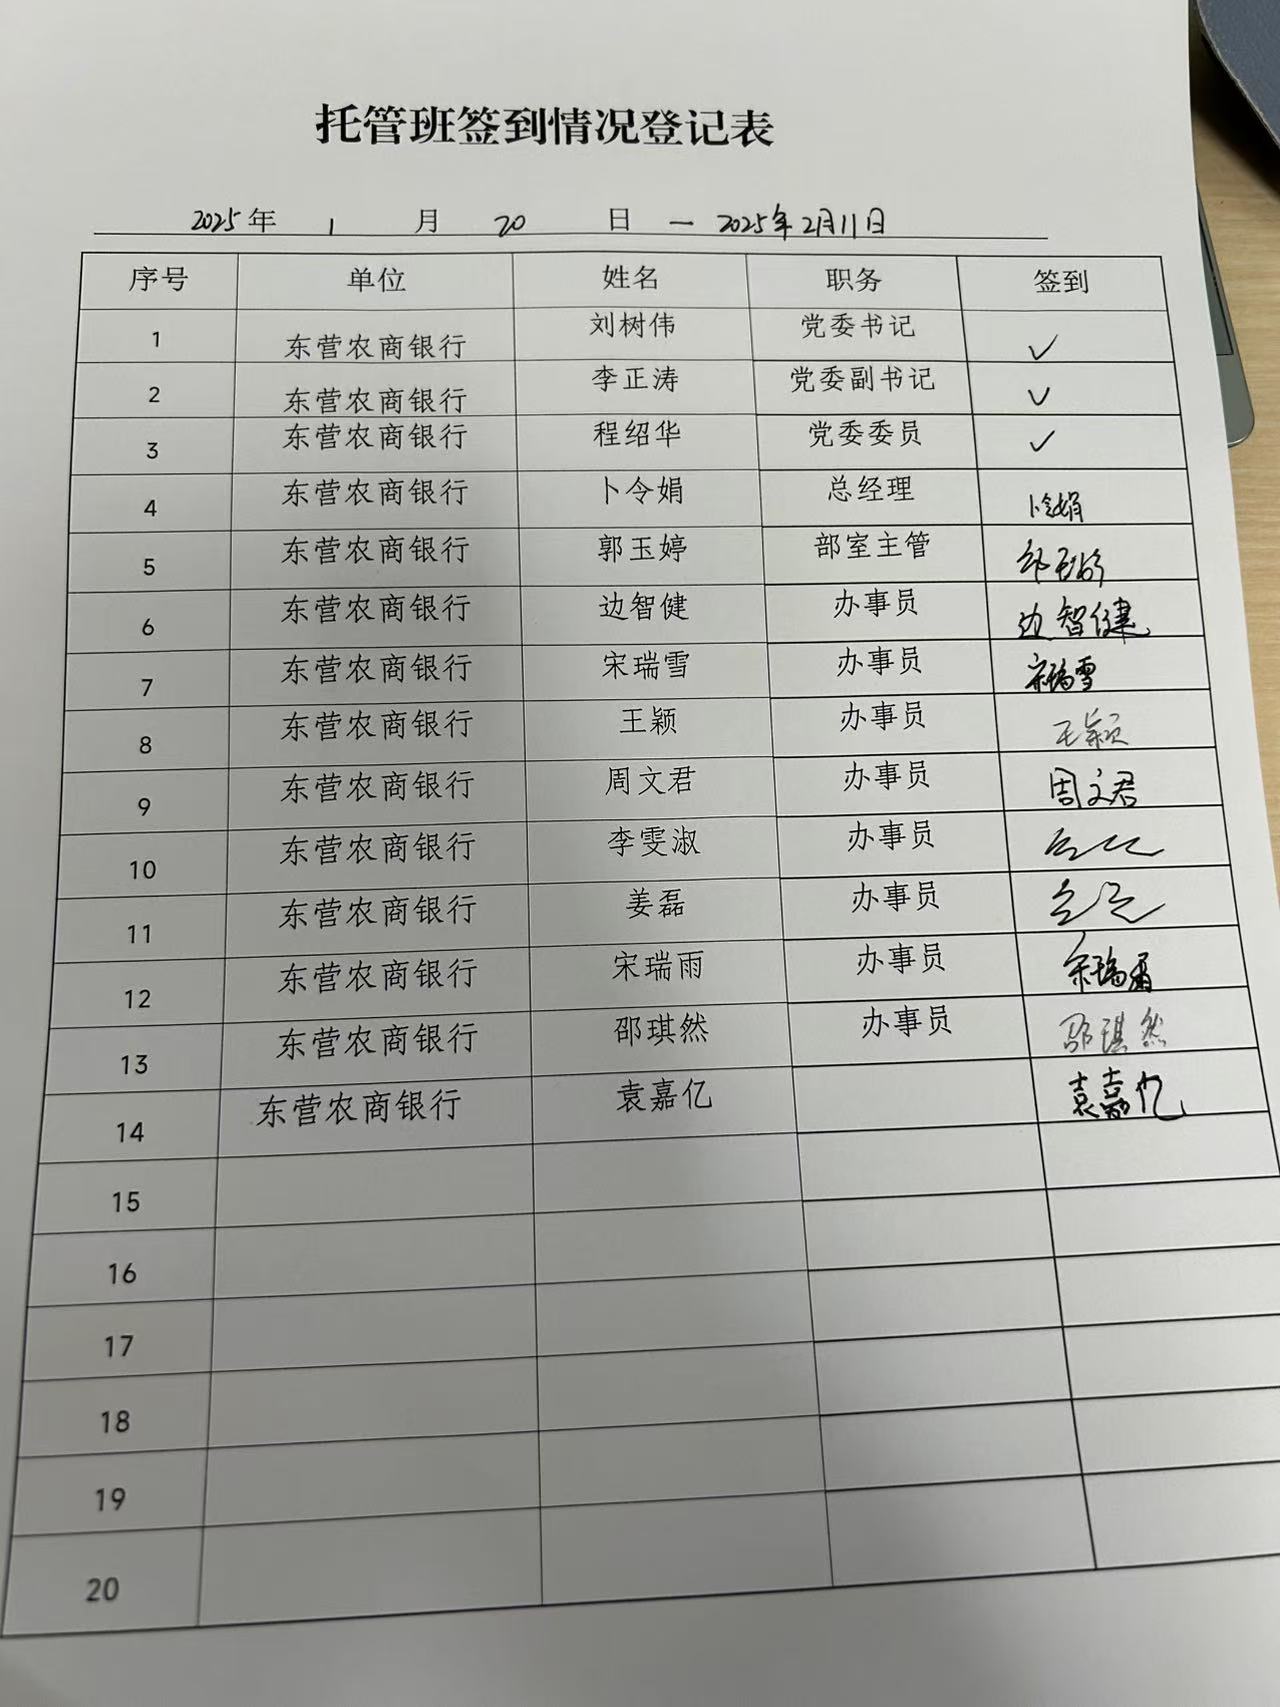 托管班签到情况登记表
2025年 1 月 20 日 — 2025年2月11日
序号 单位 姓名 职务 签到
1 东营农商银行 刘树伟 党委书记 ✓
2 东营农商银行 李正涛 党委副书记 ✓
3 东营农商银行 程绍华 党委委员 ✓
4 东营农商银行 卜令娟 总经理 卜令娟
5 东营农商银行 郭玉婷 部室主管
6 东营农商银行 边智健 办事员 边智健
7 东营农商银行 宋瑞雪 办事员 宋瑞雪
8 东营农商银行 王颖 办事员 王颖
9 东营农商银行 周文君 办事员 周文君
10 东营农商银行 李雯淑 办事员
11 东营农商银行 姜磊 办事员
12 东营农商银行 宋瑞雨 办事员 宋瑞雨
13 东营农商银行 邵琪然 办事员 邵琪然
14 东营农商银行 袁嘉亿 袁嘉亿
15
16
17
18
19
20